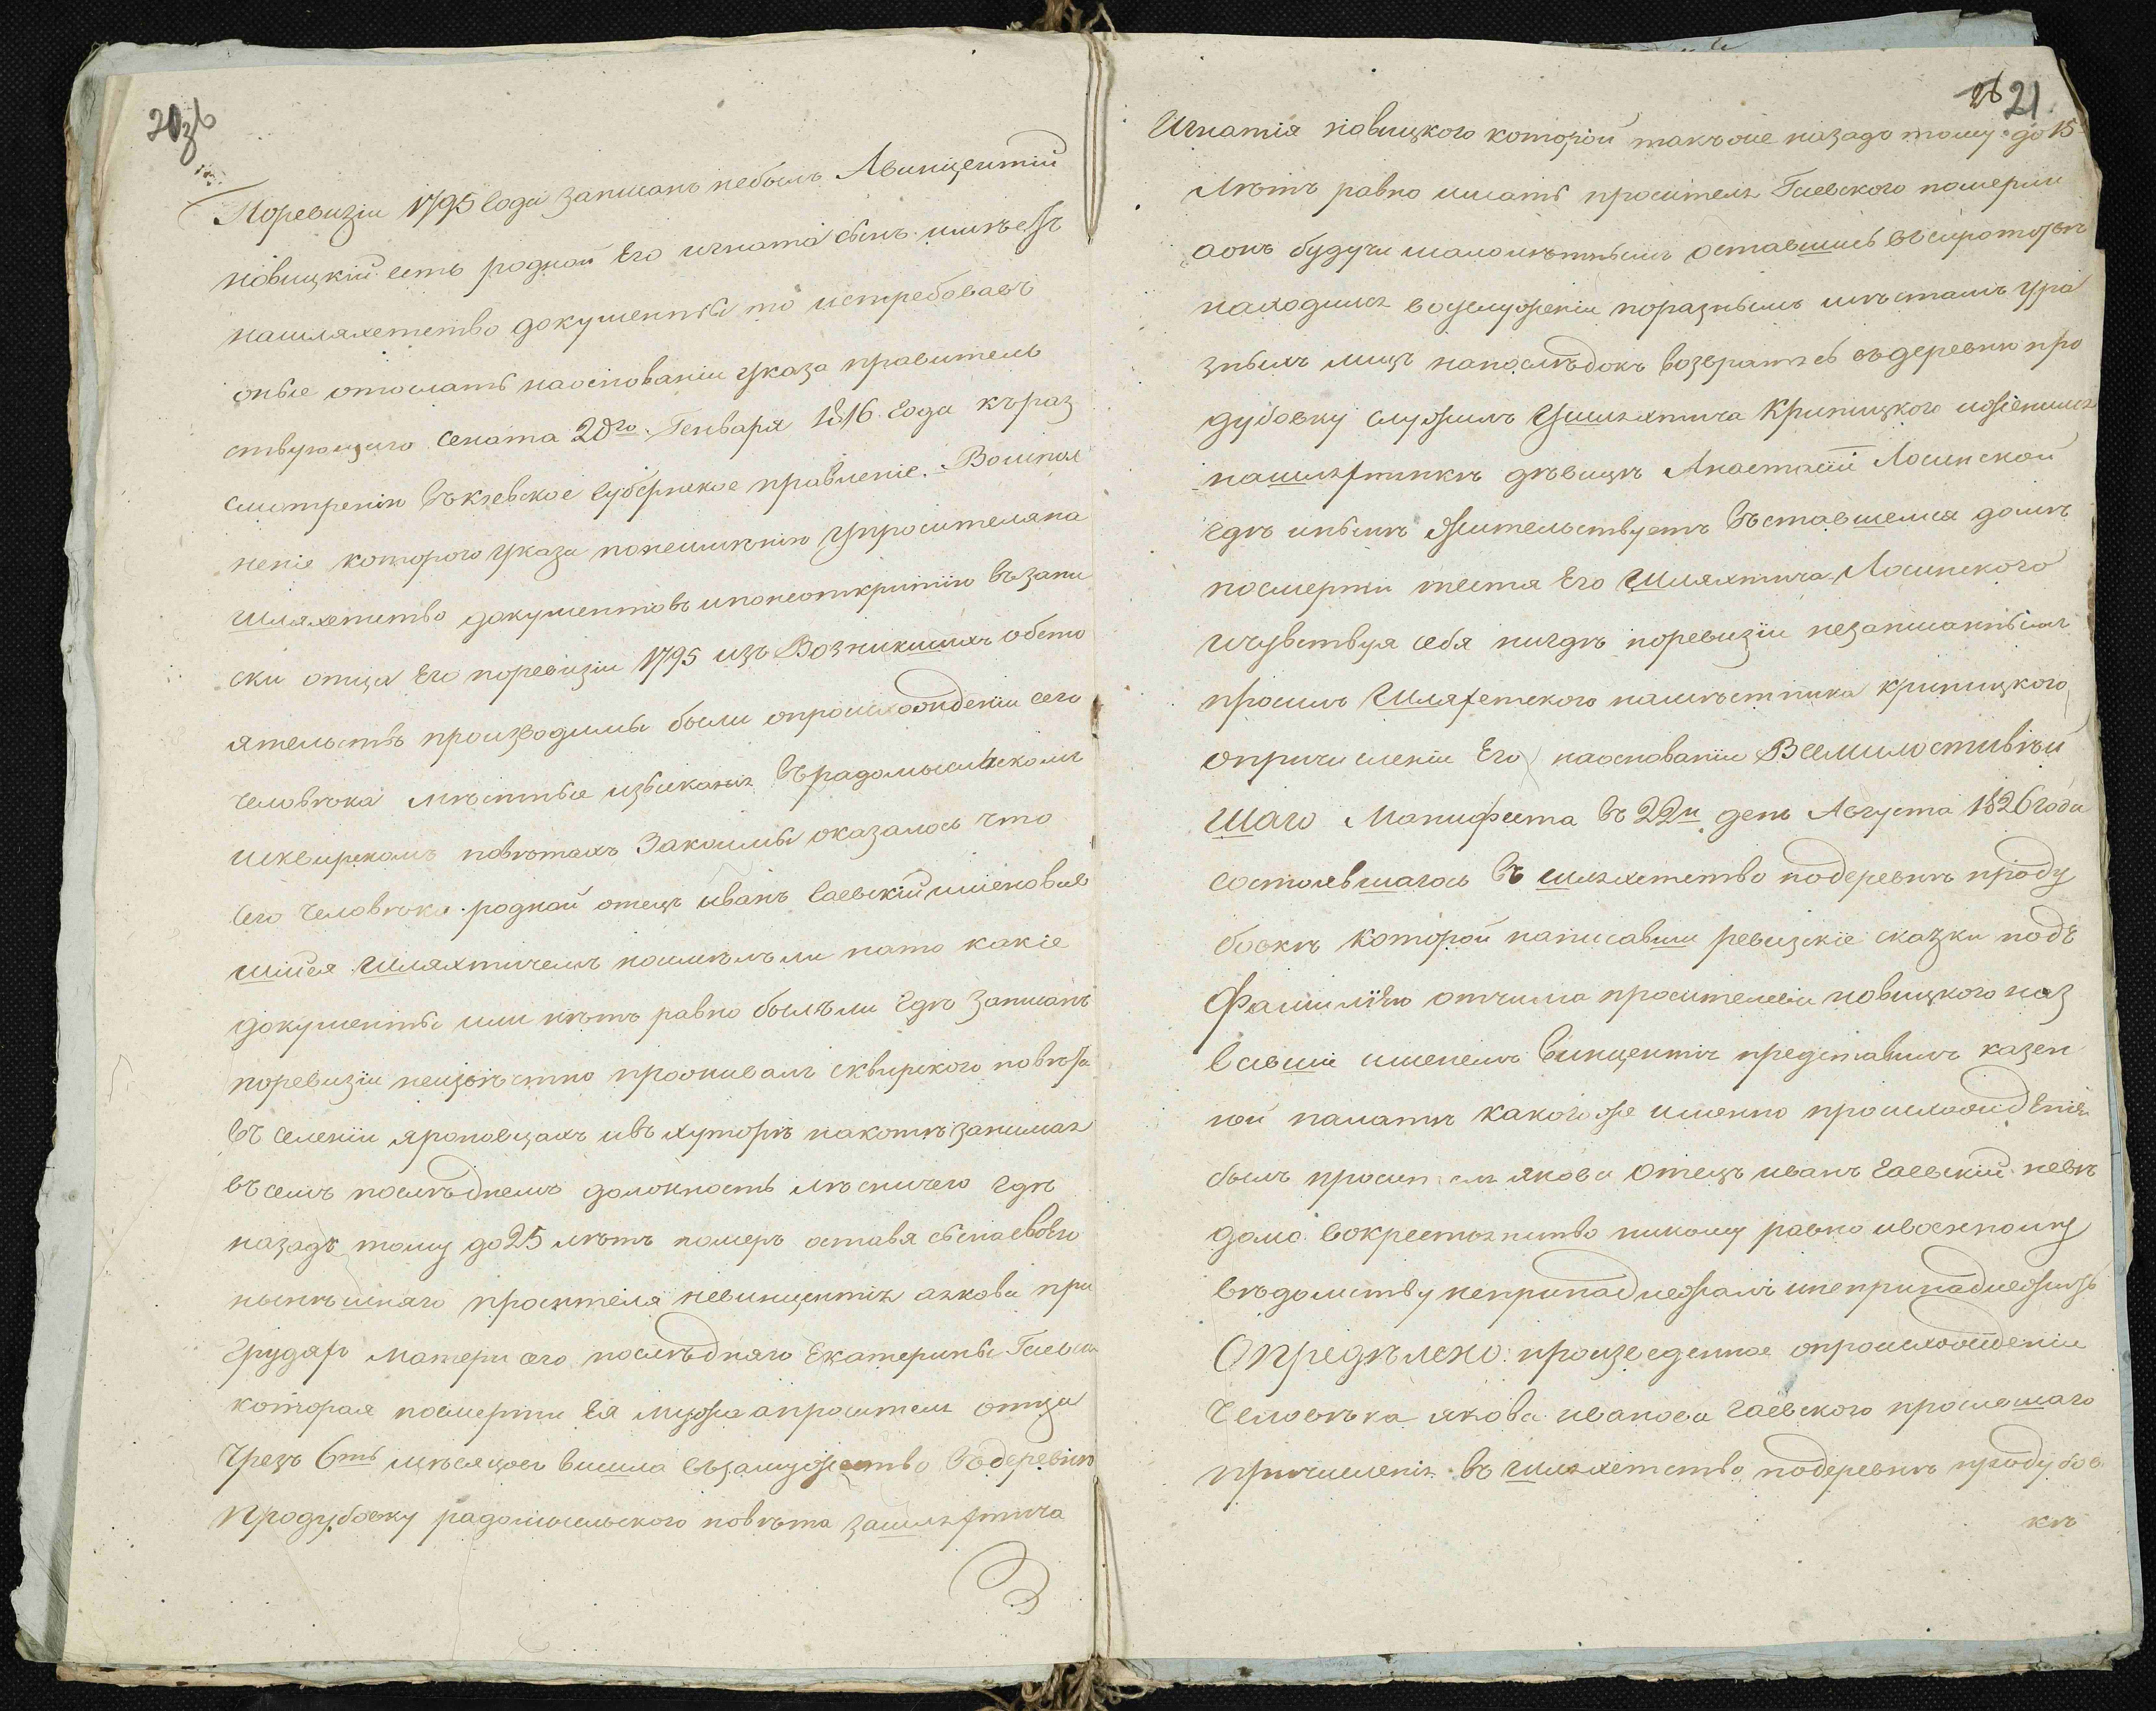 20зв
Поревизіи 1795 Года записанъ небылъ Авинцентій
новицкій есть родной Его игната сынъ. имѣетъ
нашляхетство документы то истребовавъ
оные отослать наоснованіи указа правитель
ствующаго сената 20го Генваря 1816 Года къраз
смотренію въкіевское губернское правленіе. Воиспол
неніе которого указа понеимѣнію Упросителяна
шляхетство документовъ ипонеоткритію въ запи
ски отца Его поревизіи 1795 изъ Возникшихъ обсто
ятельствъ производимы были опроисхожденіи сего
человѣка мѣстные изысканія Върадомыслъскомъ
исквирскомъ повѣтахъ Закоимы оказалось что
сего человѣка родной отецъ иванъ Гаевскій имѣновав
шійся шляхтичемъ ноимѣлъли нато какіе
документы или нѣтъ равно былъли Гдѣ Записанъ
поревизіи неизвѣстно проживалъ сквирского повѣта
въ селеніи яроповцахъ ивъ хуторѣ накотѣ занимая
въ семъ послѣднемъ должность лѣсничего Гдѣ
назадъ тому до 25 лѣтъ померъ оставя сына своего
нынѣшняго просителя невинцентія аякова при
Грудяхъ матери его послѣдняго Екатерины Гаевск
которая посмерти Ея мужа апросителя отца
Чрезъ 6ть мѣсяцовъ вишла въ замужество въдеревню
продубовку радомысльского повѣта зашляхтича
26 21
Игнатія новицкого которой такъже назадъ тому до 15
Лѣтъ равно имать просителя Гаевского померли
аонъ будучи малолѣтнымъ оставшись въсиротствѣ
находился вослуженіи поразнымъ мѣстамъ Ура
зныхъ лицъ напослѣдокъ возвратясь въдеревню про
дубовку служилъ Ушляхтича Криницкого иженился
нашляхтянкѣ дѣвицѣ Анастасіи Лосинской
Гдѣ инынѣ жительствуетъ въставшемся домѣ
посмерти тестя Его Шляхтича Лосинского
ичувствуя себя нигдѣ поревизіи незаписаннымъ
просилъ Шляхетского намѣстника криницкого
опричисленіи Его наоснованіи Всемилостивѣй
шаго Манифеста въ 22й день Августа 1826 года
состоявшагося въ шляхетство подеревнѣ проду
бовкѣ которой написавши ревизскіе сказки подъ
Фамиліею отчима просителеви новицкого наз
вавши имянемъ винцентія представилъ казен
ной палатѣ какогоже именно происхожденія
былъ просителя якова отецъ иванъ гаевскій невѣ
домо вокрестьянство никому равно ивоенному
вѣдомству непринадлежалъ инепринадлежитъ
Опредѣлено: произведенное опроисхожденіи
Человѣка якова иванова гаевского просившаго
причисленія въ шляхетство подеревнѣ продубов
кѣ